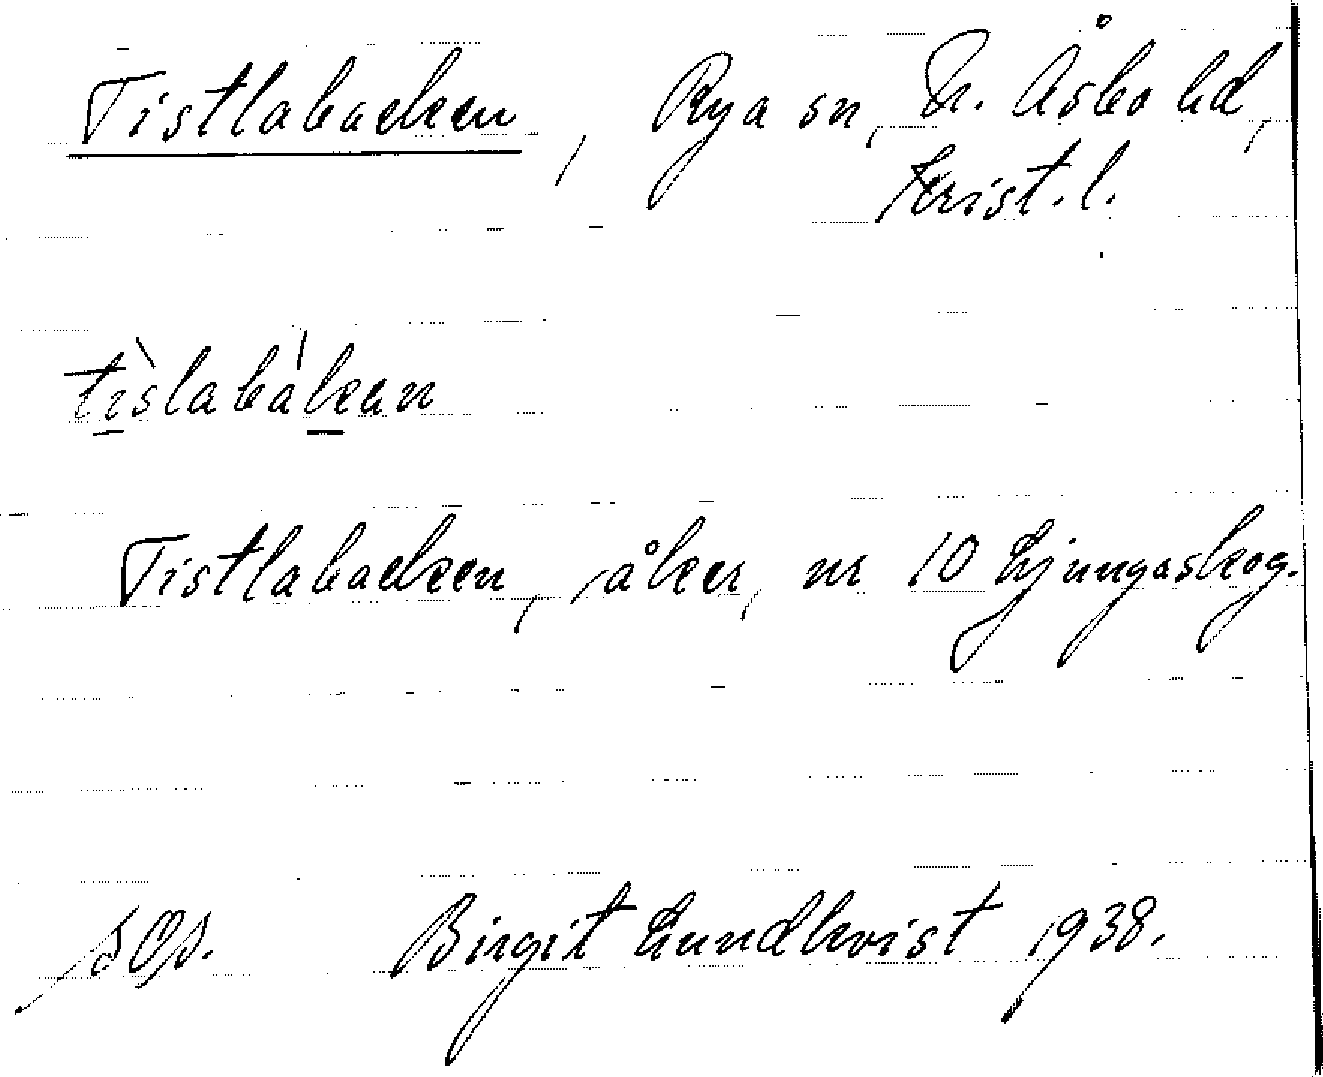 Tistlabacken, Rya sn, N. Åsbo hd,
Krist. l.
tìslabákan
Tistlabacken, åker, nr 10 Ljungaskog.
Birgit Lundkvist 1938.